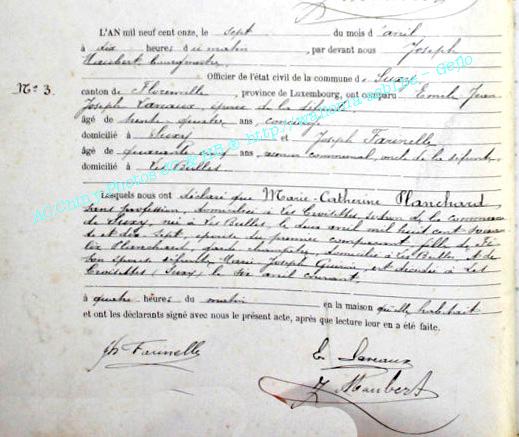 L'AN mil neuf cent onze, le sept du mois d'avril
à dix heures du matin, par devant nous Joseph
Maubert bourgmestre,
Officier de l'état civil de la commune de Suxy
N° 3. canton de Florenville, province de Luxembourg, ont comparu Emile Jean
Joseph Lavaux, époux de la défunte
âgé de trente quatre ans, concierge
domicilié à Suxy et Joseph Farinelle
âgé de quarante neuf ans, commis communal, oncle de la défunte
domicilié à Les Bulles
Lesquels nous ont déclaré que Marie-Catherine Planchard
sans profession, domiciliée à Les Croisettes section de la commune
de Suxy, née à Les Bulles, le deux avril mil huit cent soixan
te et dix sept, épouse du premier comparant, fille de Fé
lix Planchard, garde champêtre, domicilié à Les Bulles, et de
son épouse défunte Marie Joseph est décédée à Les
Croisettes, Suxy, le six avril courant,
à quatre heures du matin en la maison qu'elle habitait
et ont les déclarants signé avec nous le présent acte, après que lecture leur en a été faite.
Farinelle
E Lavaux
J Maubert